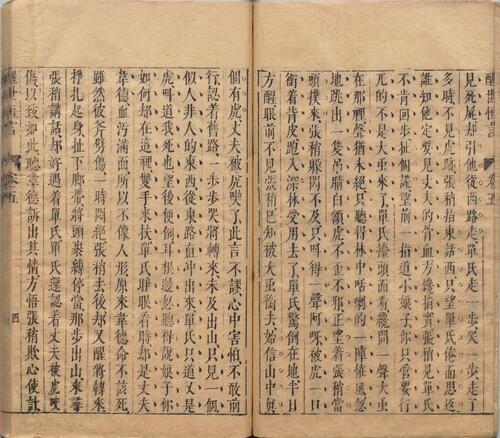 醒世恒言
卷五
見死屍却引他從西路走單氏走一步哭一步走了
多時不見虎跡張稍指東話西只望單氏倦而思返
誰知他定要見丈夫的骨血方纔指實張稍見單氏
不肯回步扯個謊望前一指道小娘子你只管要行
兀的不是大虫來了單氏擡頭而看纔問一聲大虫
在那裡聲猶未絕只聽得林中咶喇的一陣怪風忽
地跳出一隻吊睛白額虎不歪不邪正望着張稍當
頭撲來張稍躲閃不及只呌得一聲阿呀被虎一口
銜着背皮跑入深林受用去了單氏驚倒在地半日
方醒眼前不見張稍已知被大虫銜去始信山中真
個有虎丈夫被虎喫了此言不謬心中害怕不敢前
行認着舊路一步步哭將轉來未及出山只見一個
似人非人的東西從東路直冲出來單氏只道又是
虎呌道我死也望後便倒耳根邊忽聽得說娘子你
如何却在這裡雙手來扶單氏睜眼看時却是丈夫
韋德血汚滿面所以不像人形原來韋德命不該死
雖然被斧劈傷一時悶絕張稍去後却又醒將轉來
掙扎起身扯下脚帶將頭裹縛停當挪步出山來尋
張稍講話却好遇着單氏單氏還認着丈夫被虎咬
傷以致如此聽韋德訴出其情方悟張稍欺心使計
四